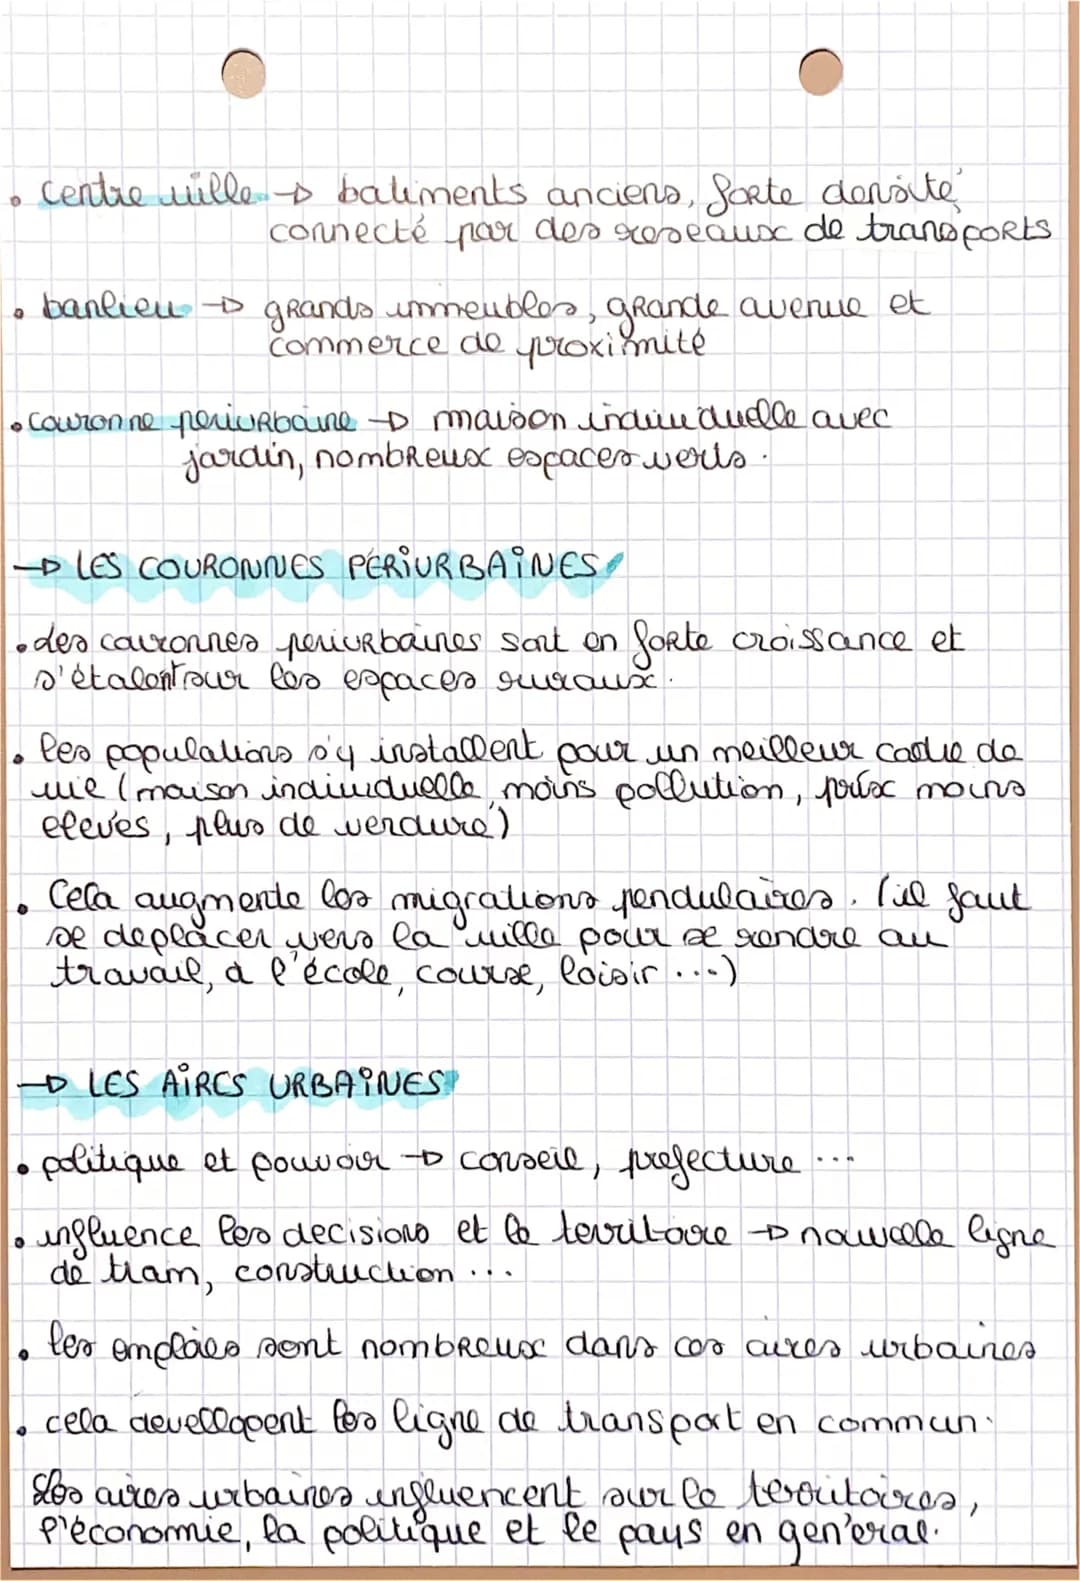 • centre ville → batiments anciens, forte densité
connecté par des reseaux de transports
• banlieu → grands immeubles, grande avenue et
commerce de proximité
• couronne periurbaine → maison individuelle avec
jardin, nombreux espaces verts.
→ LES COURONNES PÉRIURBAINES
• des couronnes periurbaines sont en forte croissance et
s'étalent sur les espaces ruraux.
• les populations s'y installent pour un meilleur cadre de
vie (maison individuelle, moins pollution, prix moins
eleves, plus de verdure)
• Cela augmente les migrations pendulaires. (il faut
se deplacer vers la ville pour se rendre au
travail, a l'école, course, loisir ...)
→ LES AIRES URBAINES
• politique et pouvoir → conseil, prefecture ...
• influence les decisions et le territoire → nouvelle ligne
de tram, construction ...
• les emplois sont nombreux dans ces aires urbaines
• cela devellopent les ligne de transport en commun.
Les aires urbaines influencent sur le territoires,
l'économie, la politique et le pays en général.